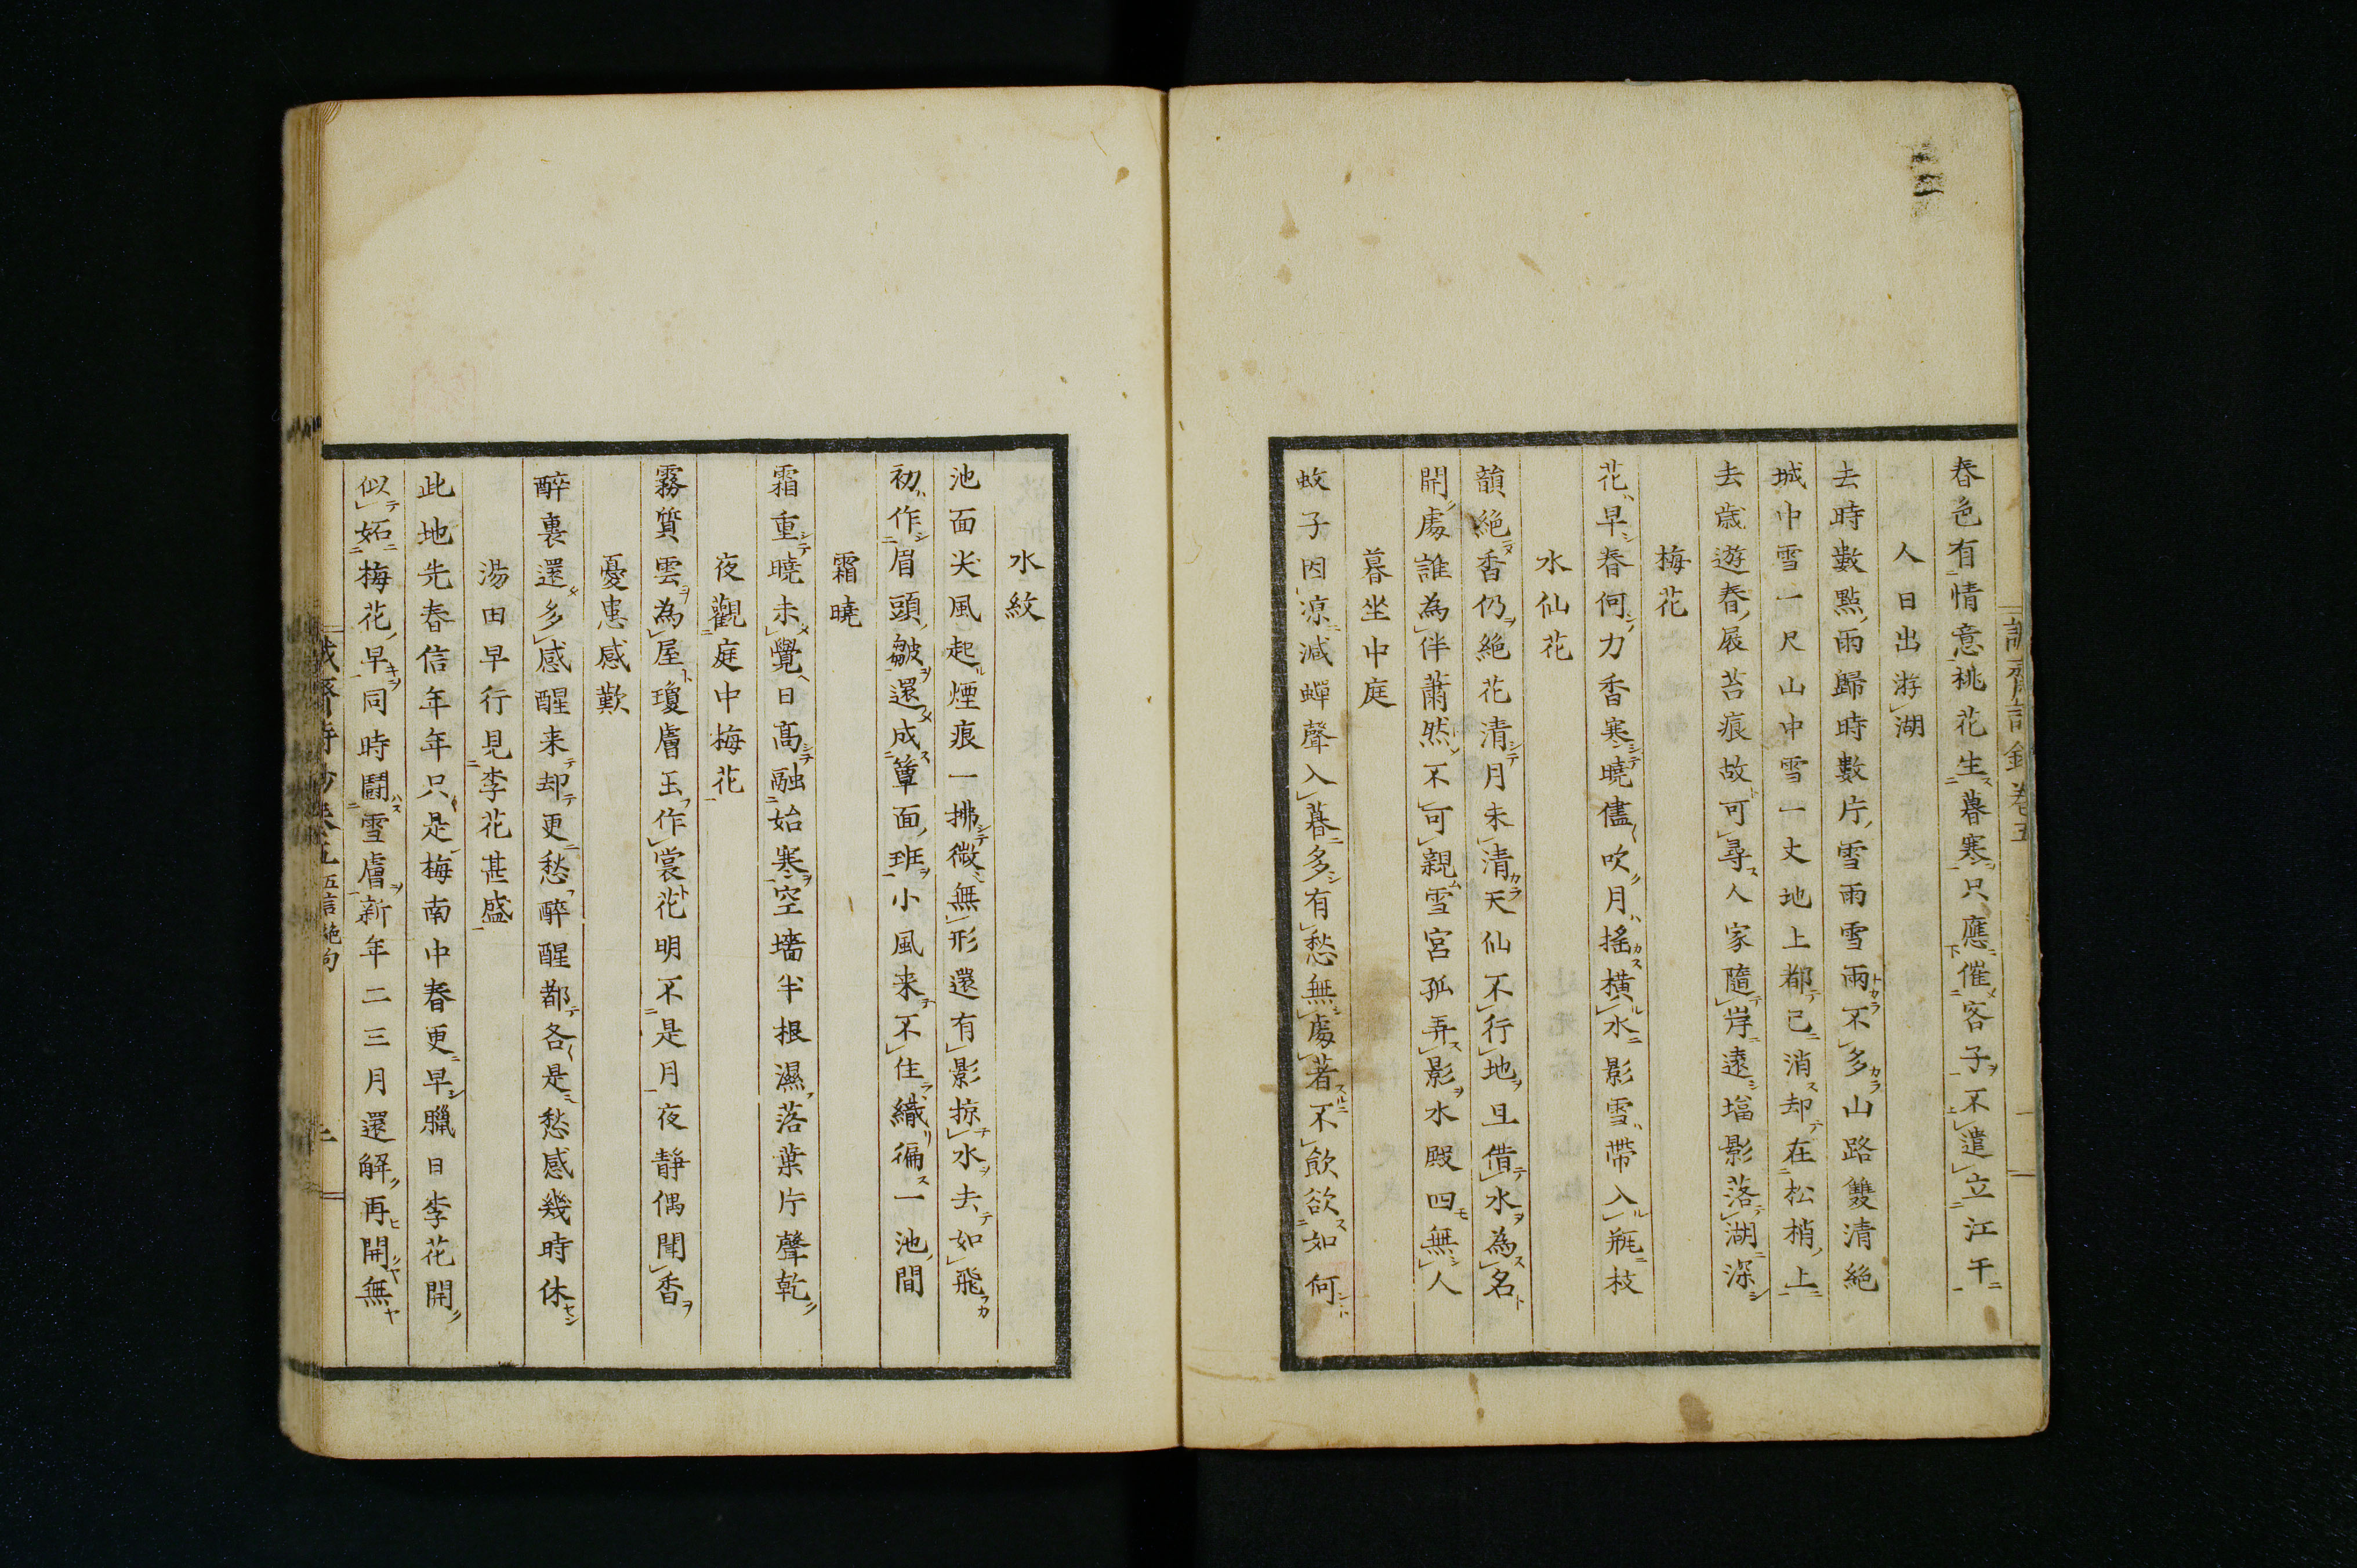 春色有情意桃花生暮寒只應催客子不遣立江干
人日出游湖
去時數點雨歸時數片雪雨雪雨不多山路雙清絕
城中雪一尺山中雪一丈地上都已消却在松梢上
去歳遊春屐苔痕故可尋人家隨岸遠塔影落湖深
梅花
花早春何力香寒曉儘吹月搖橫水影雪帶入瓶枝
水仙花
韻絕香仍絕花清月未清天仙不行地且借水為名
開處誰為伴蕭然不可親雪宮孤弄影水殿四無人
暮坐中庭
蚊子因涼減蟬聲入暮多有愁無處著不飲欲如何
水紋
池面尖風起煙痕一拂微無形還有影掠水去如飛
初作眉頭皺還成簟面班小風来不住織徧一池間
霜曉
霜重曉未覺日髙融始寒空墻半根濕落葉片聲乾
夜觀庭中梅花
霧質雲為屋瓊膚玉作裳花明不是月夜靜偶聞香
憂患感歎
醉裏還多感醒来却更愁醉醒都各是愁感幾時休
湯田早行見李花甚盛
此地先春信年年只是梅南中春更早臘日李花開
似妬梅花早同時鬪雪膚新年二三月還解再開無
誠齋詩鈔卷五 五言絶句 二